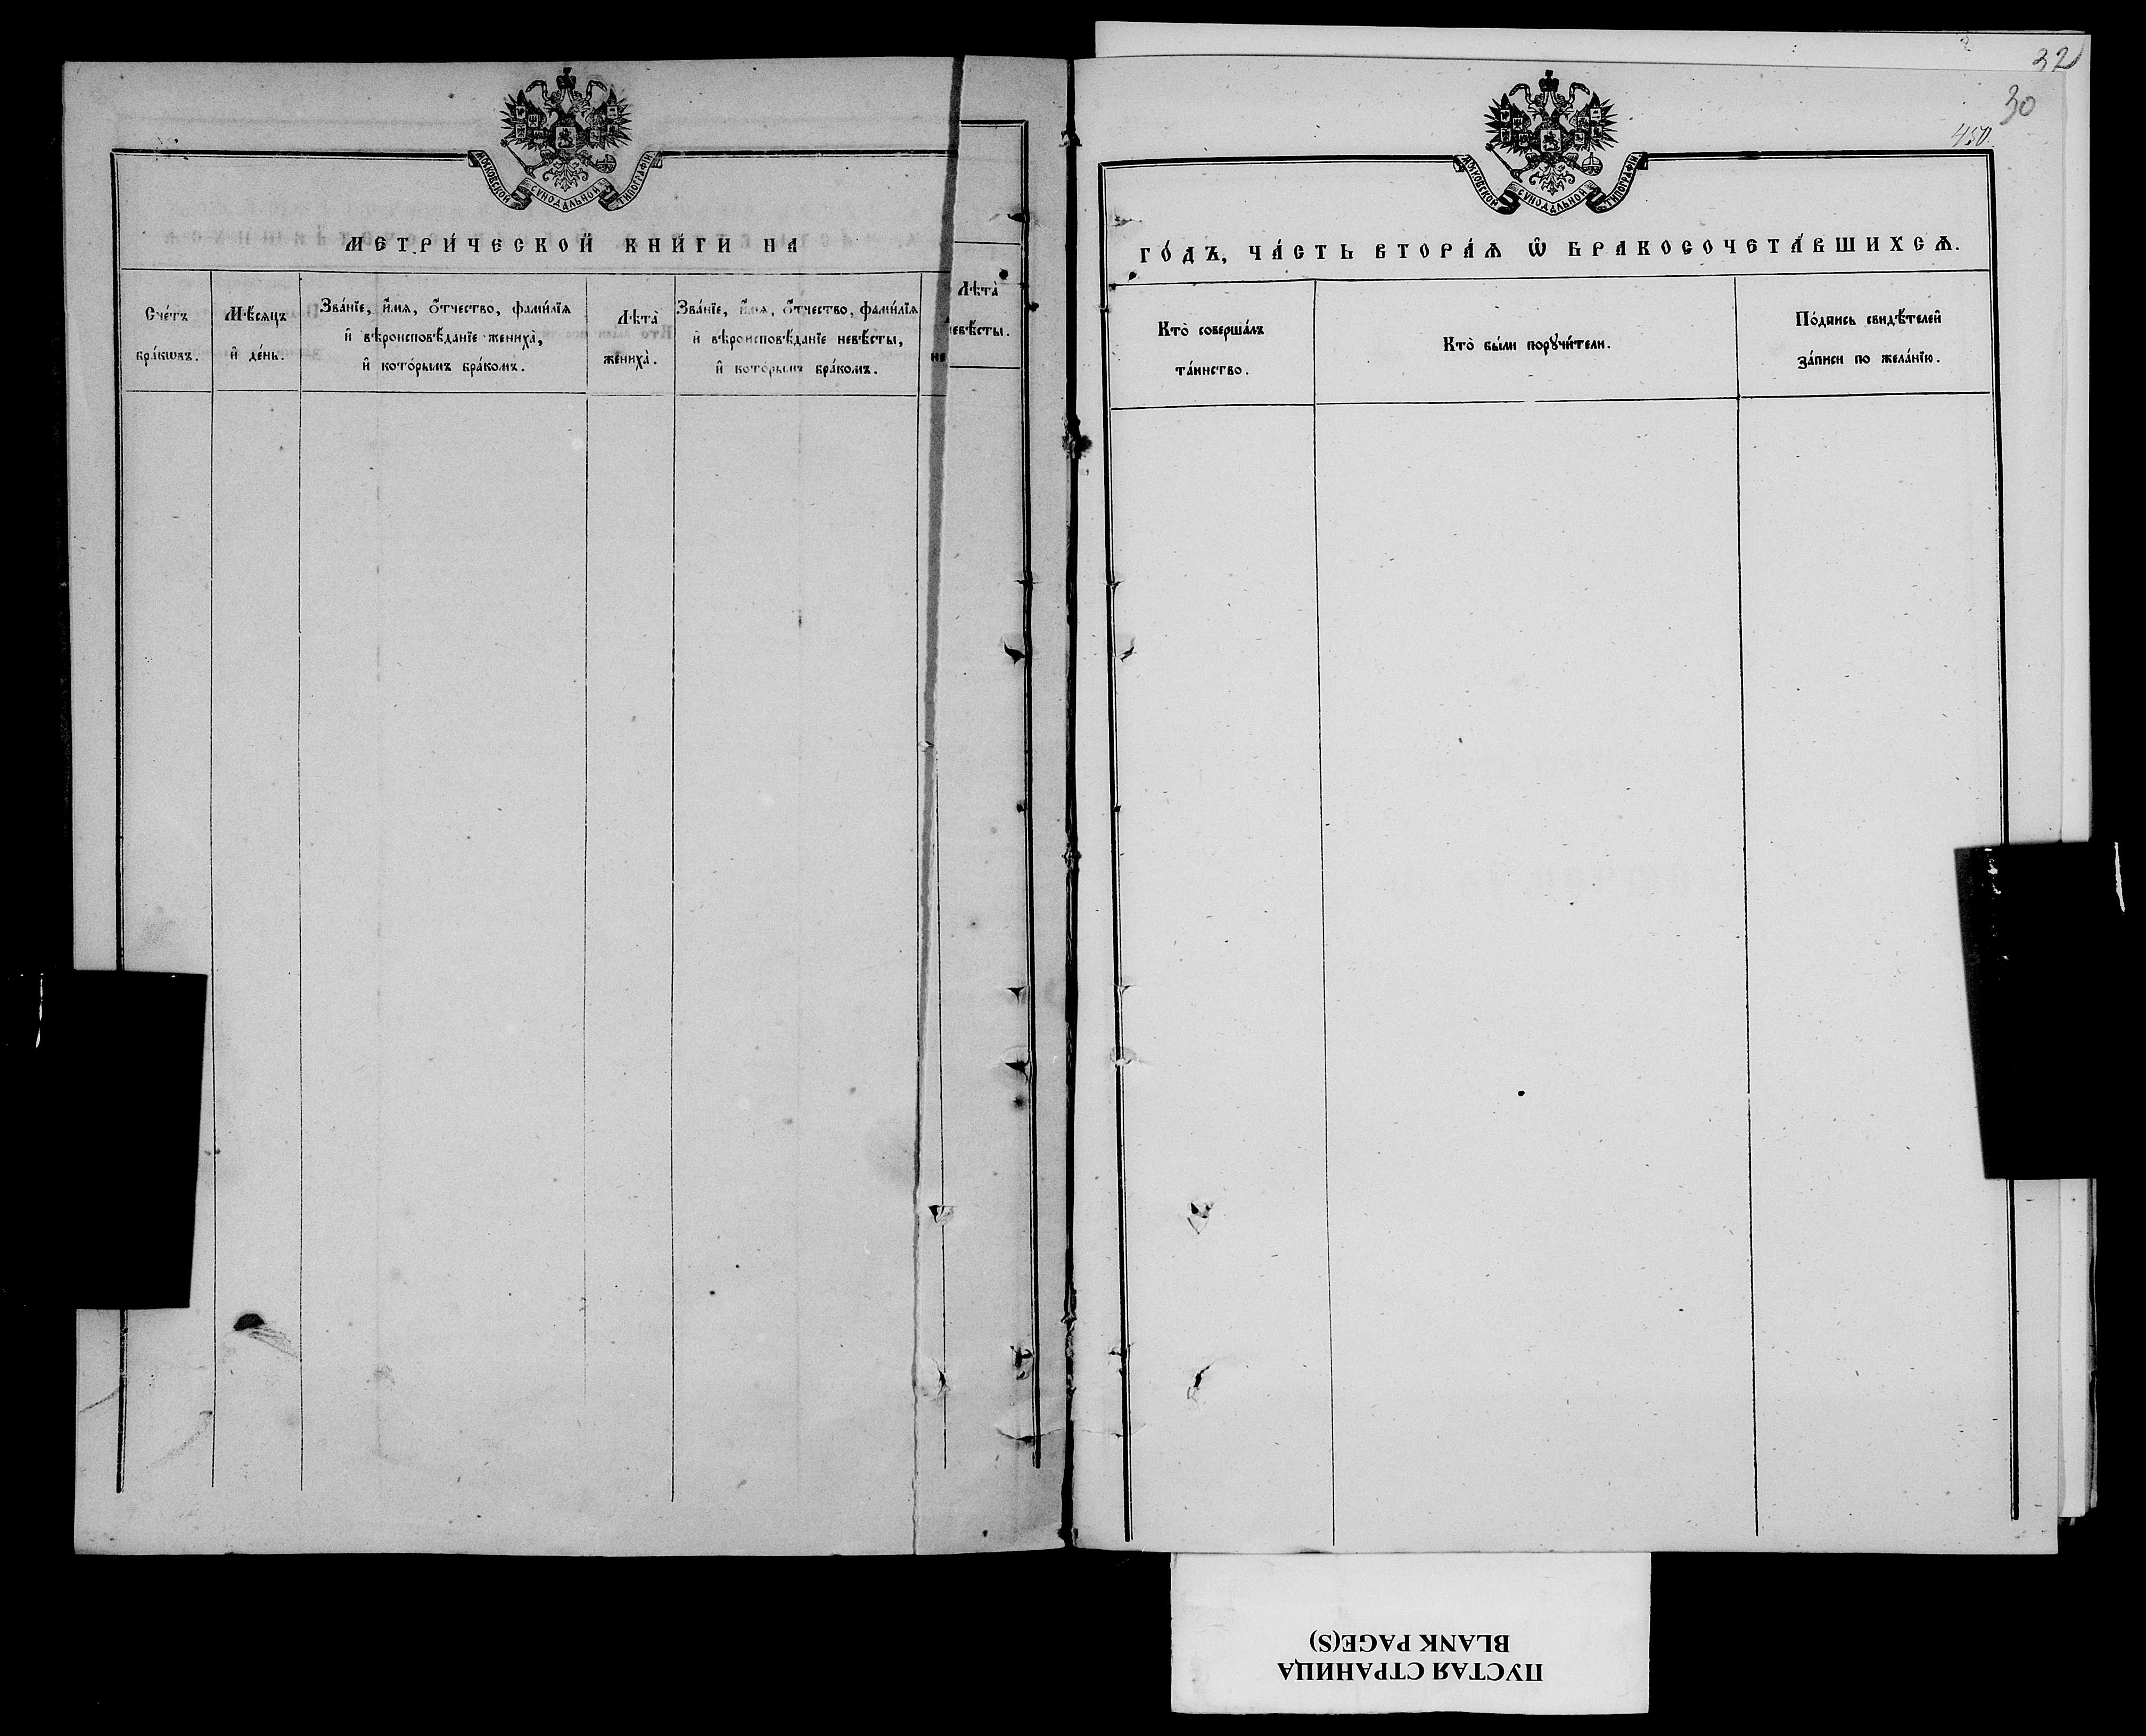 МОСКОВСКОЙ СѴНОДАЛЬНОЙ ТИПОГРАФІИ
МЕТРИ́ЧЕСКОЙ КНИ́ГИ НА
Сче́тъ
бра́кѡвъ.
Мѣ́сяцъ
и҆ де́нь.
Зва́нїе, и҆́мя, ѻ҆́тчество, фами́лїя
и҆ вѣроисповѣ́данїе жениха̀,
и҆ кото́рымъ бра́комъ.
Лѣта̀
жениха̀.
Зва́нїе, и҆́мя, ѻ҆́тчество, фами́лїя
и҆ вѣроисповѣ́данїе невѣ́сты,
и҆ кото́рымъ бра́комъ.
не
Лѣта̀
невѣ́сты.
32
30
450.
МОСКОВСКОЙ СѴНОДАЛЬНОЙ ТИПОГРАФІИ
ГО́ДЪ, ЧА́СТЬ ВТОРА́Ѧ Ѽ БРАКОСОЧЕТА́ВШИХСѦ.
Кто̀ соверша́лъ
та́инство.
Кто̀ бы́ли порꙋчи́тели.
По́дпись свидѣ́телей
за́писи по жела́нїю.
ПУСТАЯ СТРАНИЦА
BLANK PAGE(S)